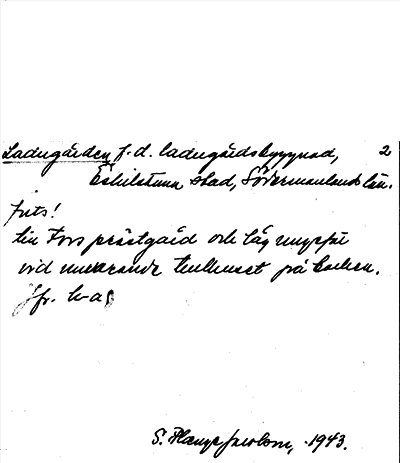 Ladugården f.d. ladugårdsbyggnad, 2
Eskilstuna stad, Södermanlands län.
Futs!
till Fors prästgård och låg ungefär
vid nuvarande tullhuset på backen.
Jfr. h-a
S. Plange Jacobson, 1943.